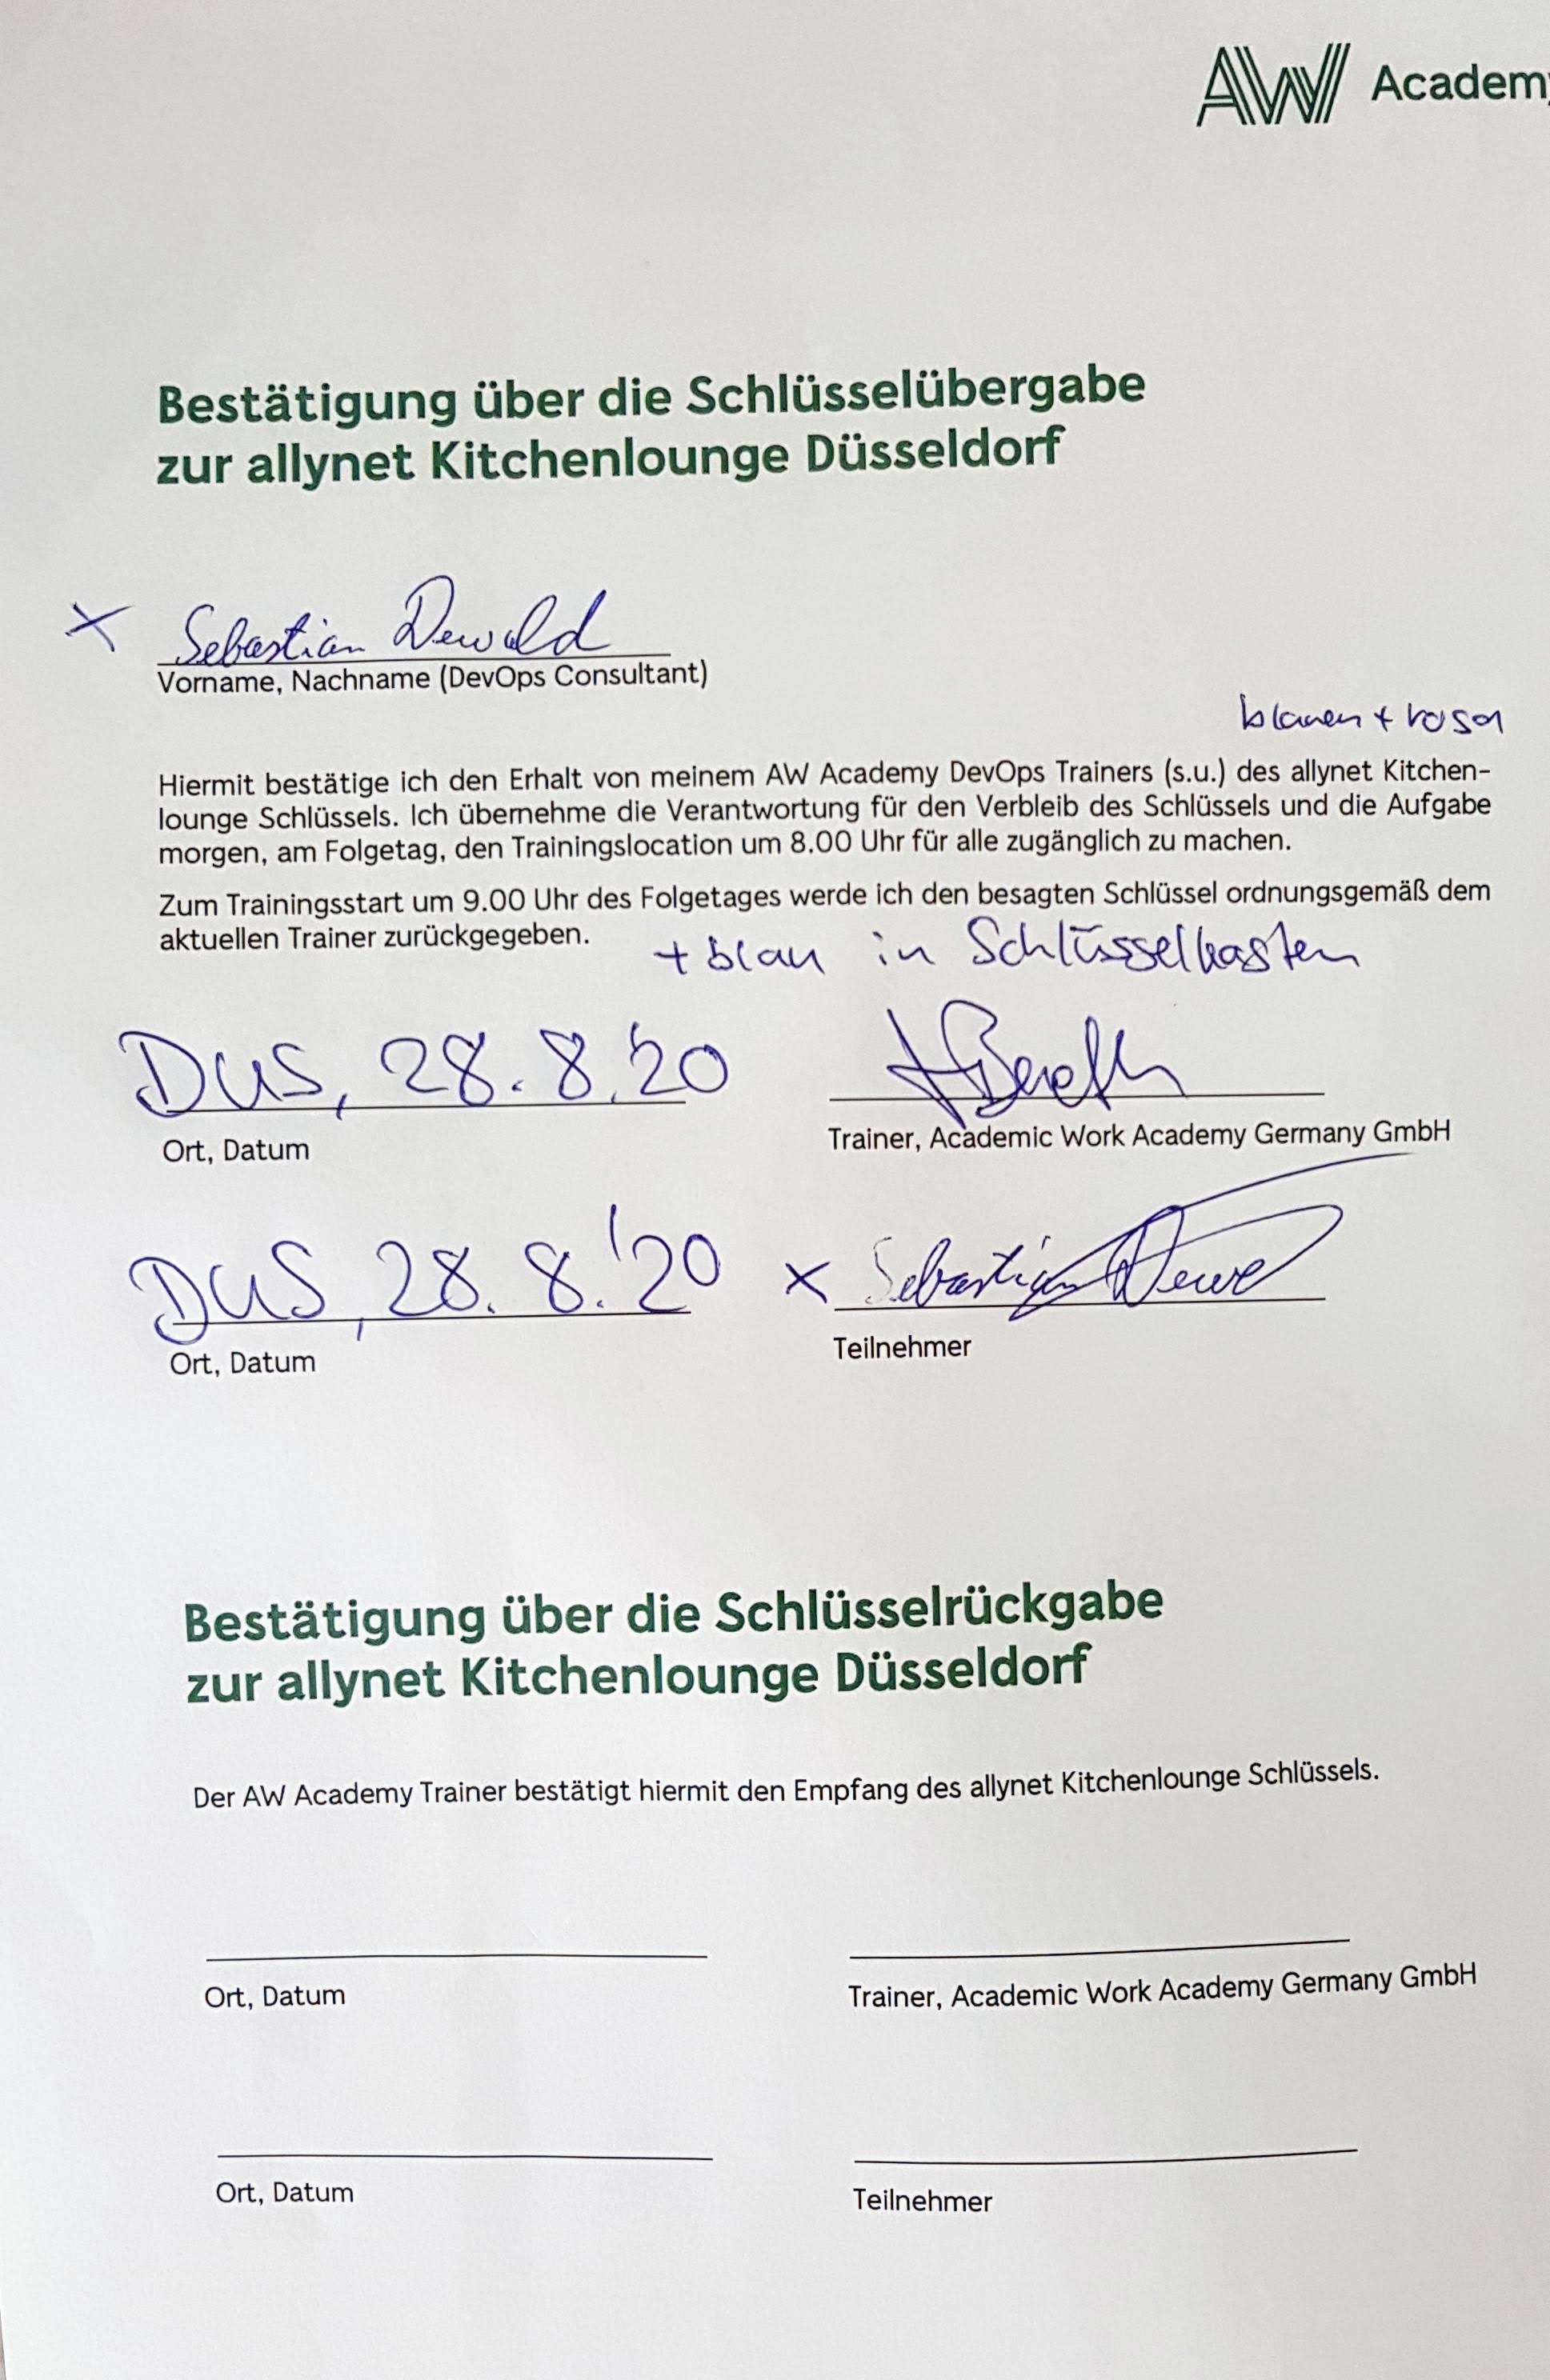 AW Academy
Bestätigung über die Schlüsselübergabe
zur allynet Kitchenlounge Düsseldorf
x Sebastian Dewald
Vorname, Nachname (DevOps Consultant)
blauen + rosa
Hiermit bestätige ich den Erhalt von meinem AW Academy DevOps Trainers (s.u.) des allynet Kitchen-
lounge Schlüssels. Ich übernehme die Verantwortung für den Verbleib des Schlüssels und die Aufgabe
morgen, am Folgetag, den Trainingslocation um 8.00 Uhr für alle zugänglich zu machen.
Zum Trainingsstart um 9.00 Uhr des Folgetages werde ich den besagten Schlüssel ordnungsgemäß dem
aktuellen Trainer zurückgegeben.
+ blau in Schlüsselkasten
DUS, 28.8.'20
Ort, Datum
Trainer, Academic Work Academy Germany GmbH
DUS, 28.8.'20 x Sebastian
Ort, Datum
Teilnehmer
Bestätigung über die Schlüsselrückgabe
zur allynet Kitchenlounge Düsseldorf
Der AW Academy Trainer bestätigt hiermit den Empfang des allynet Kitchenlounge Schlüssels.
Ort, Datum
Trainer, Academic Work Academy Germany GmbH
Ort, Datum
Teilnehmer